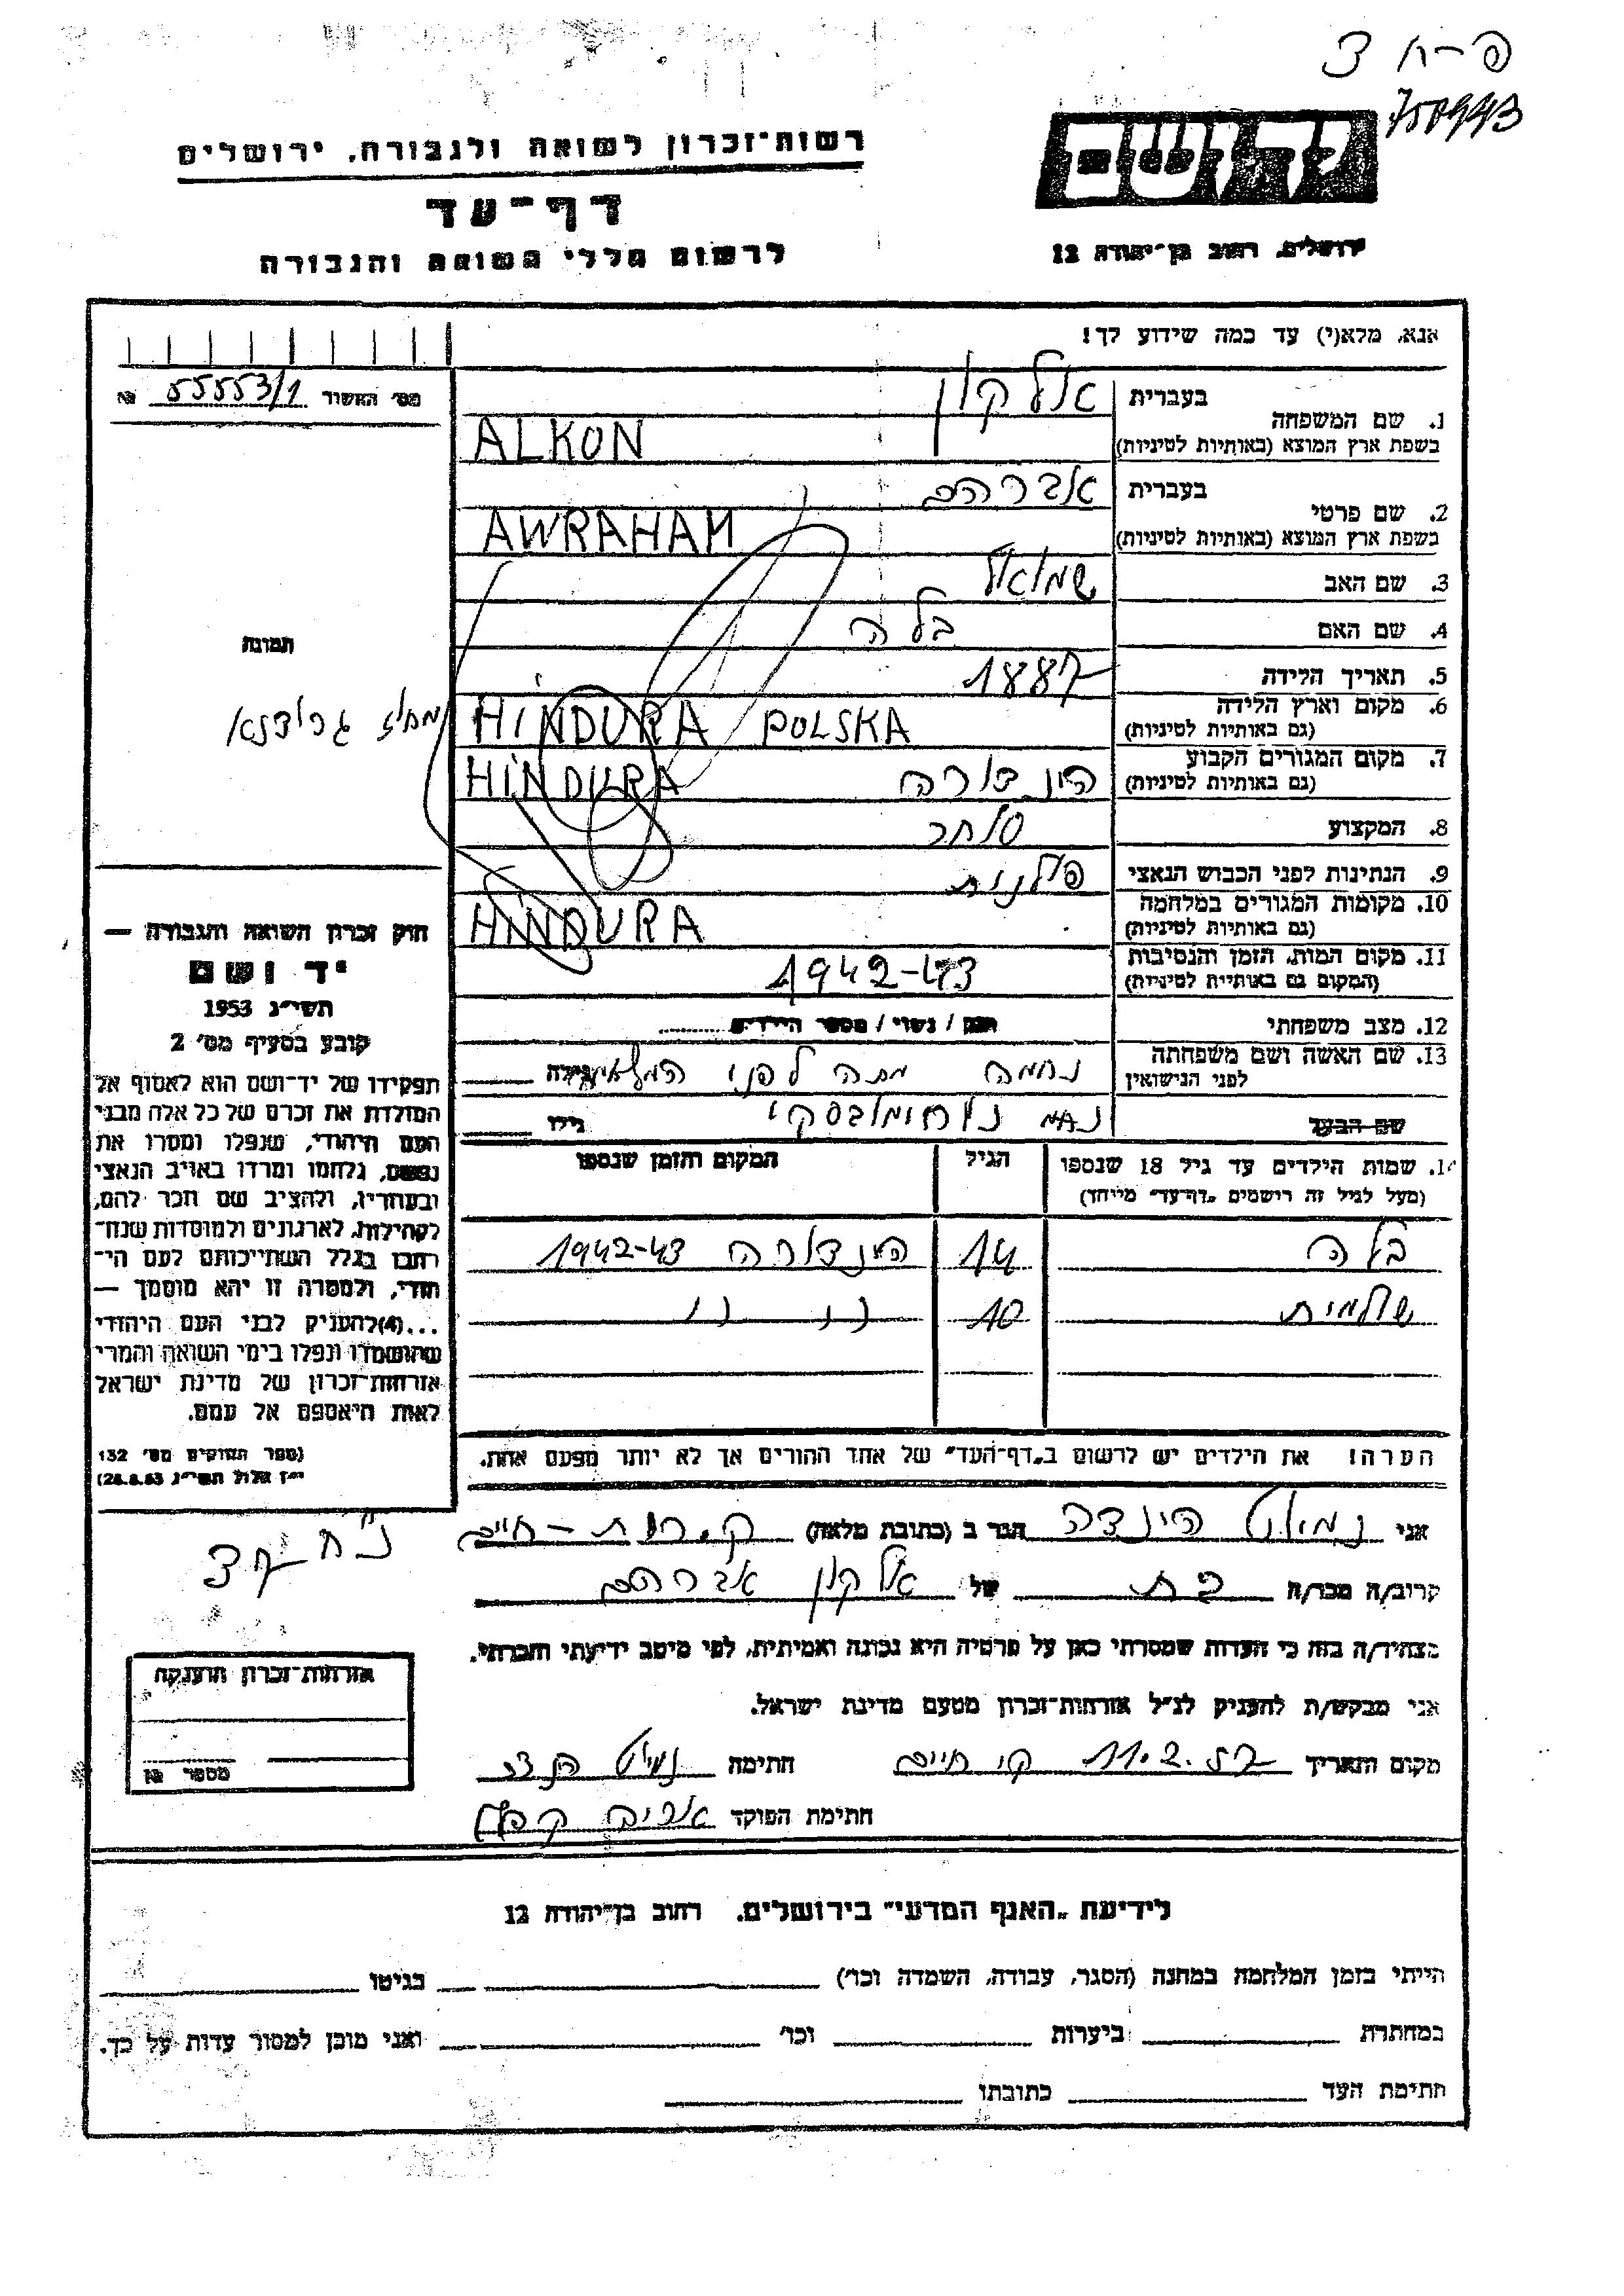 פ-ח צ
יד ושם
רשות־זכרון לשואה ולגבורה, ירושלים
דף־עד
לרשום חללי השואה והגבורה
ירושלים, רחוב בן־יהודה 12
אנא, מלא(י) עד כמה שידוע לך!
מס׳ האשור 55553/1 №
1. שם המשפחה
בעברית אלקון
בשפת ארץ המוצא (באותיות לטיניות) ALKON
2. שם פרטי
בעברית אברהם
בשפת ארץ המוצא (באותיות לטיניות) AWRAHAM
3. שם האב שמואל
4. שם האם בלה
תמונה
5. תאריך הלידה 1887
6. מקום וארץ הלידה
(גם באותיות לטיניות) HINDURA POLSKA מחוז גרודנא
7. מקום המגורים הקבוע
(גם באותיות לטיניות) הינדורה HINDURA
8. המקצוע סוחר
9. הנתינות לפני הכבוש הנאצי פולנית
10. מקומות המגורים במלחמה
(גם באותיות לטיניות) HINDURA
11. מקום המות, הזמן והנסיבות
(המקום גם באותיות לטיניות) 1942-43
12. מצב משפחתי רווק / נשוי / מספר הילדים
13. שם האשה ושם משפחתה
לפני הנישואין נחמה מתה לפני המלחמה גילה
שם הבעל גילו
14. שמות הילדים עד גיל 18 שנספו הגיל המקום והזמן שנספו
(מעל לגיל זה רושמים „דף־עד״ מייחד)
בלה 14 הינדורה 1942-43
שולמית 10 " "
הערה! את הילדים יש לרשום ב„דף־העד״ של אחד ההורים אך לא יותר מפעם אחת.
חוק זכרון השואה והגבורה —
יד ושם
תשי״ג 1953
קובע בסעיף מס׳ 2
תפקידו של יד־ושם הוא לאסוף אל
המולדת את זכרם של כל אלה מבני
העם היהודי, שנפלו ומסרו את
נפשם, נלחמו ומרדו באויב הנאצי
ובעוזריו, ולהציב שם וזכר להם,
לקהילות, לארגונים ולמוסדות שנח־
רבו בגלל השתייכותם לעם היה־
הודי, ולמטרה זו יהא מוסמך —
...(4)להעניק לבני העם היהודי
שהושמדו ונפלו בימי השואה והמרי
אזרחות־זכרון של מדינת ישראל
לאות היאספם אל עמם.
(ספר החוקים מס׳ 132
י״ז אלול תשי״ג 28.8.53)
אני הינדה הגר ב (כתובת מלאה) ק. חיים
קרוב/ה מכר/ה בת של אלקון אברהם
מצהיר/ה בזה כי העדות שמסרתי כאן על פרטיה היא נכונה ואמיתית, לפי מיטב ידיעתי והכרתי.
אני מבקש/ת להעניק לנ״ל אזרחות־זכרון מטעם מדינת ישראל.
מקום ותאריך ק. חיים 11.2.57 חתימה
חתימת הפוקד
אזרחות־זכרון הוענקה
מספר
לידיעת „האגף המדעי״ בירושלים, רחוב בן־יהודה 12
הייתי בזמן המלחמה במחנה (הסגר, עבודה, השמדה וכו׳) בגיטו
במחתרת ביערות וכו׳ ואני מוכן למסור עדות על כך.
חתימת העד כתובתו